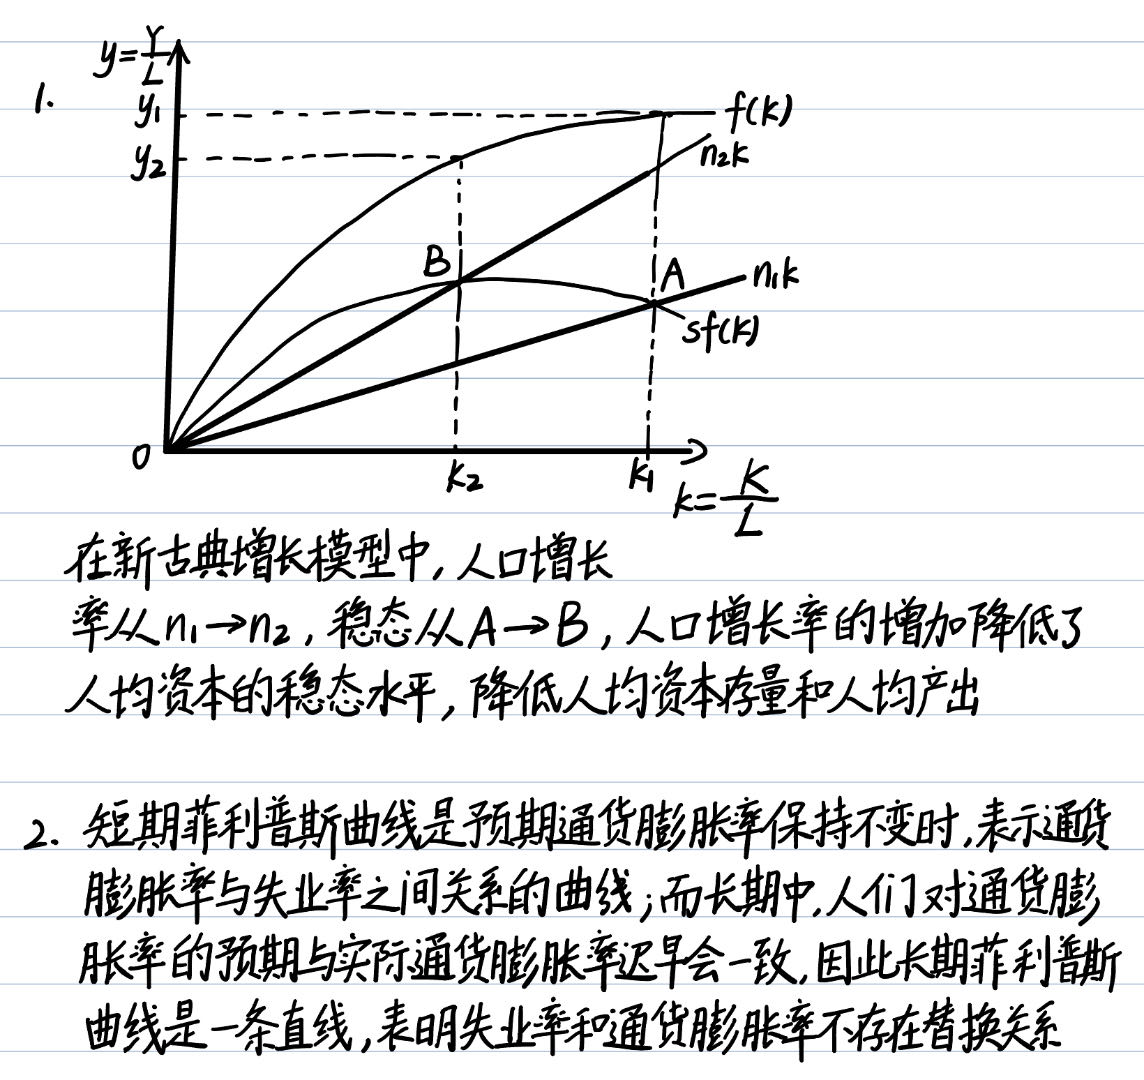 y=Y/L
1.
y₁
f(k)
y₂
n₂k
B
A
n₁k
sf(k)
0
k₂
k₁
k=K/L
在新古典增长模型中,人口增长
率从n₁→n₂,稳态从A→B,人口增长率的增加降低了
人均资本的稳态水平,降低人均资本存量和人均产出
2. 短期菲利普斯曲线是预期通货膨胀率保持不变时,表示通货
膨胀率与失业率之间关系的曲线;而长期中,人们对通货膨
胀率的预期与实际通货膨胀率迟早会一致,因此长期菲利普斯
曲线是一条直线,表明失业率和通货膨胀率不存在替换关系